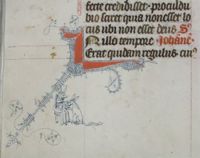 fecte credidisset · proculdu
bio sciret quia non esset lo
cus ubi non esset deus S
In illo tempore · Johanē
Erat quidam regulus cuiꝰ